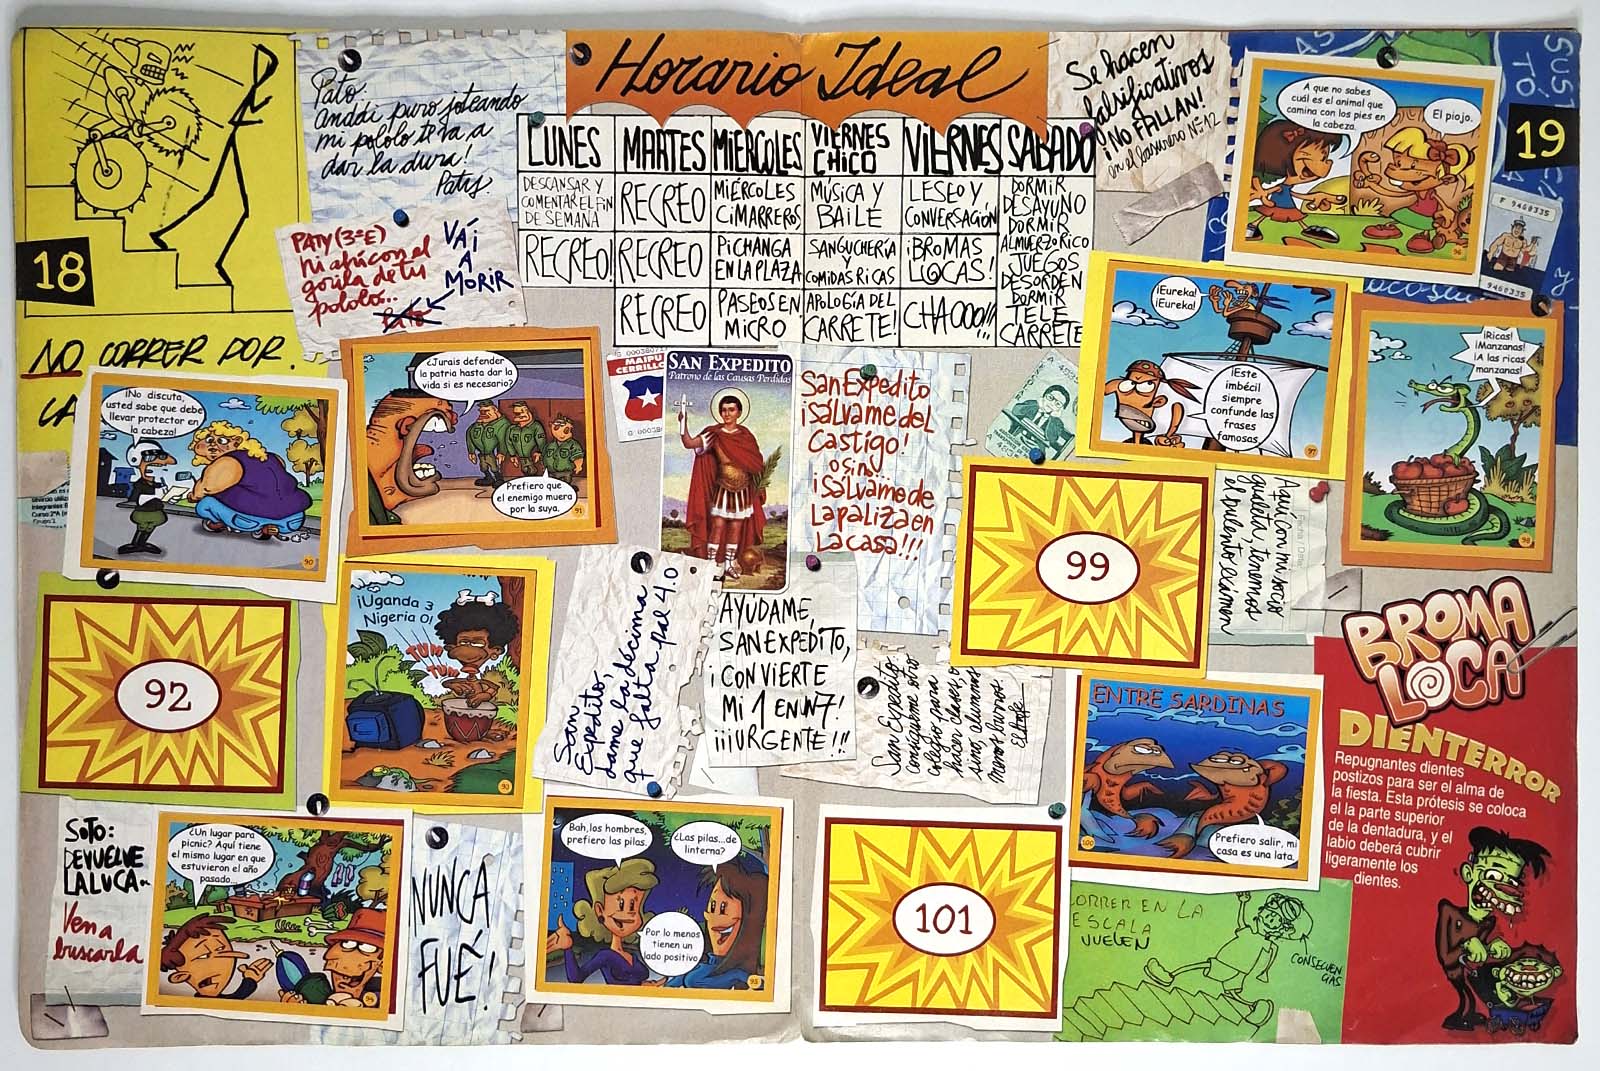 18
NO CORRER POR
LA
Pato:
anddi puro joteando
mi pololo te va a
dar la dura!
Paty.
PATY (3ºE)
ni ahí con el
gorila de tu
pololo...
Pato
VAI
A
MORIR
Horario Ideal
LUNES
MARTES
MIERCOLES
VIERNES
CHICO
VIERNES
SABADO
DESCANSAR Y
COMENTAR EL FIN
DE SEMANA
RECREO
MIÉRCOLES
CIMARREROS
MÚSICA Y
BAILE
LESEO Y
CONVERSACIÓN
DORMIR
DESAYUNO
DORMIR
ALMUERZO RICO
JUEGOS
DESORDEN
DORMIR
TELE
CARRETE
RECREO!
RECREO
PICHANGA
EN LA PLAZA
SANGUCHERÍA
Y
COMIDAS RICAS
¡BROMAS
LOCAS!
RECREO
PASEOS EN
MICRO
APOLOGÍA DEL
CARRETE!
CHAOOO!!!
Se hacen
falsificativos
¡NO FALLAN!
en el basurero Nº 12
19
A que no sabes
cuál es el animal que
camina con los pies en
la cabeza.
El piojo.
96
F 9460335
9460335
¡No discuta,
usted sabe que debe
llevar protector en
la cabeza!
90
¿Jurais defender
la patria hasta dar la
vida si es necesario?
Prefiero que
el enemigo muera
por la suya.
91
MAIPU
CERRILLOS
SAN EXPEDITO
Patrono de las Causas Perdidas
San Expedito
¡Sálvame del
Castigo!
o sino
¡Sálvame de
La paliza en
La casa!!!
¡Eureka!
¡Eureka!
¡Este
imbécil
siempre
confunde las
frases
famosas.
97
¡Ricas!
¡Manzanas!
¡A las ricas
manzanas!
98
92
¡Uganda 3
Nigeria 0!
TUM
TUM
TUM
93
San
Expedito,
dame la décima
que falta pal 4.0
AYÚDAME,
SAN EXPEDITO,
¡CONVIERTE
MI 1 EN UN 7!
¡¡¡URGENTE!!!
San Expedito:
consígueme otro
colegio para
hacer clases, o
sino, alumnos
menos burros.
El Profe
99
Aquí con mi socio
gueleta, tenemos
el pulento exámen
ENTRE SARDINAS
Prefiero salir, mi
casa es una lata.
100
BROMA
LOCA
DIENTERROR
Repugnantes dientes
postizos para ser el alma de
la fiesta. Esta prótesis se coloca
el la parte superior
de la dentadura, y el
labio deberá cubrir
ligeramente los
dientes.
SOTO:
DEVUELVE
LA LUCA..
Ven a
buscarla
¿Un lugar para
picnic? Aquí tiene
el mismo lugar en que
estuvieron el año
pasado...
94
NUNCA
FUÉ!
Bah, los hombres,
prefiero las pilas.
¿Las pilas...de
linterna?
Por lo menos
tienen un
lado positivo
95
101
CORRER EN LA
ESCALA
VUELEN
CONSECUEN
CIAS